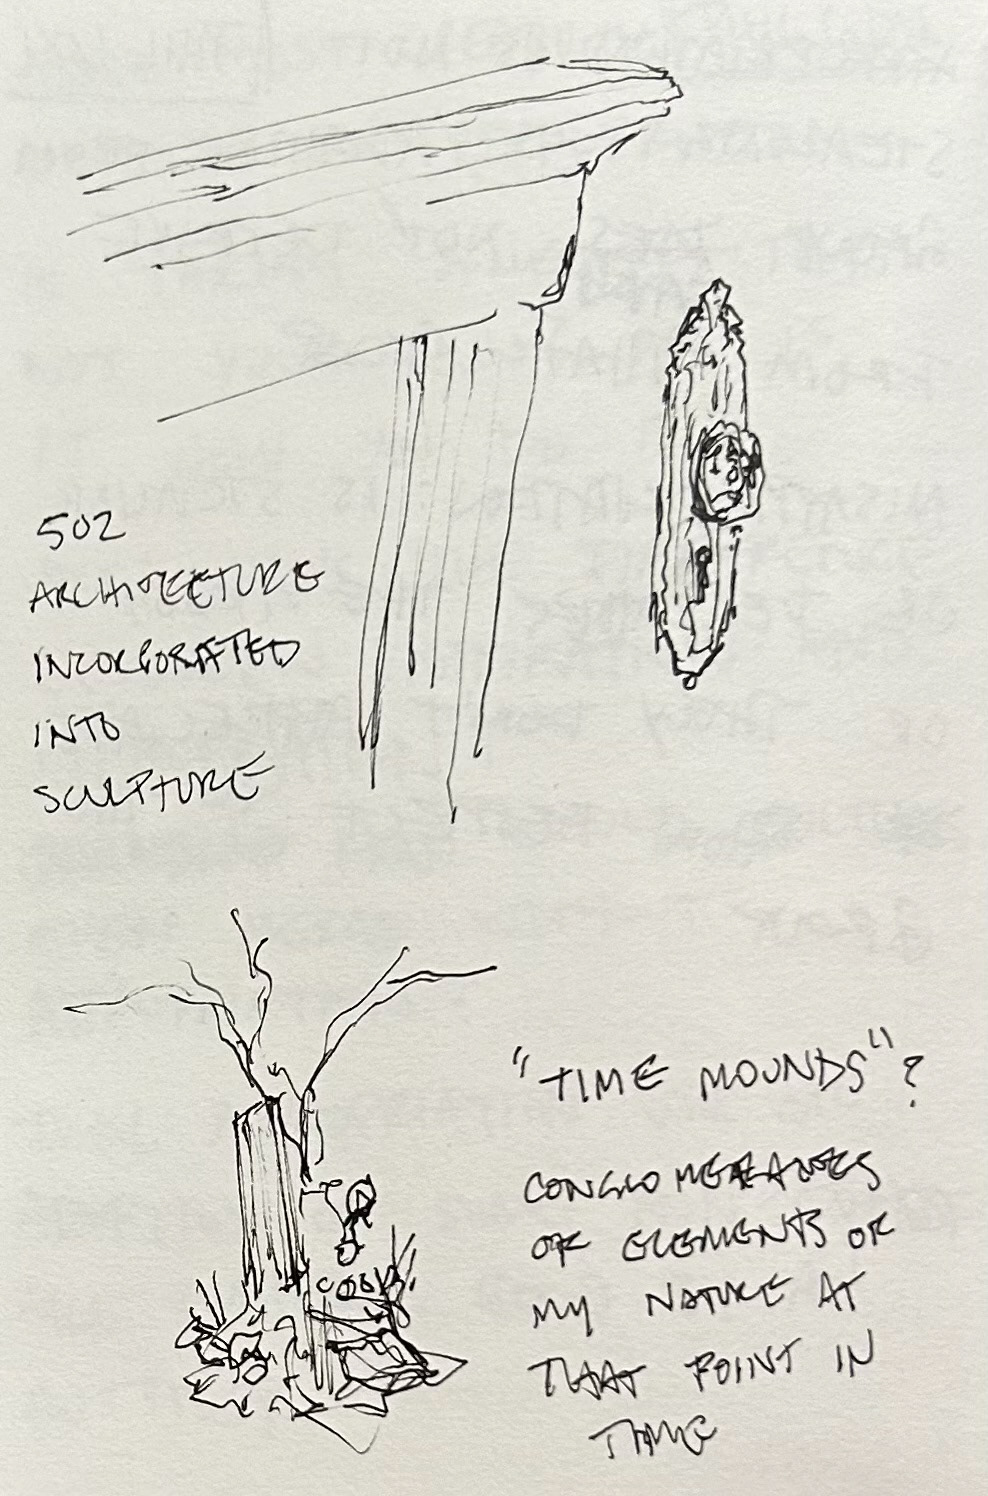 502
ARCHITECTURE
INCORPORATED
INTO
SCULPTURE
"TIME MOUNDS"?
CONGLOMERATES
OF ELEMENTS OF
MY NATURE AT
THAT POINT IN
TIME